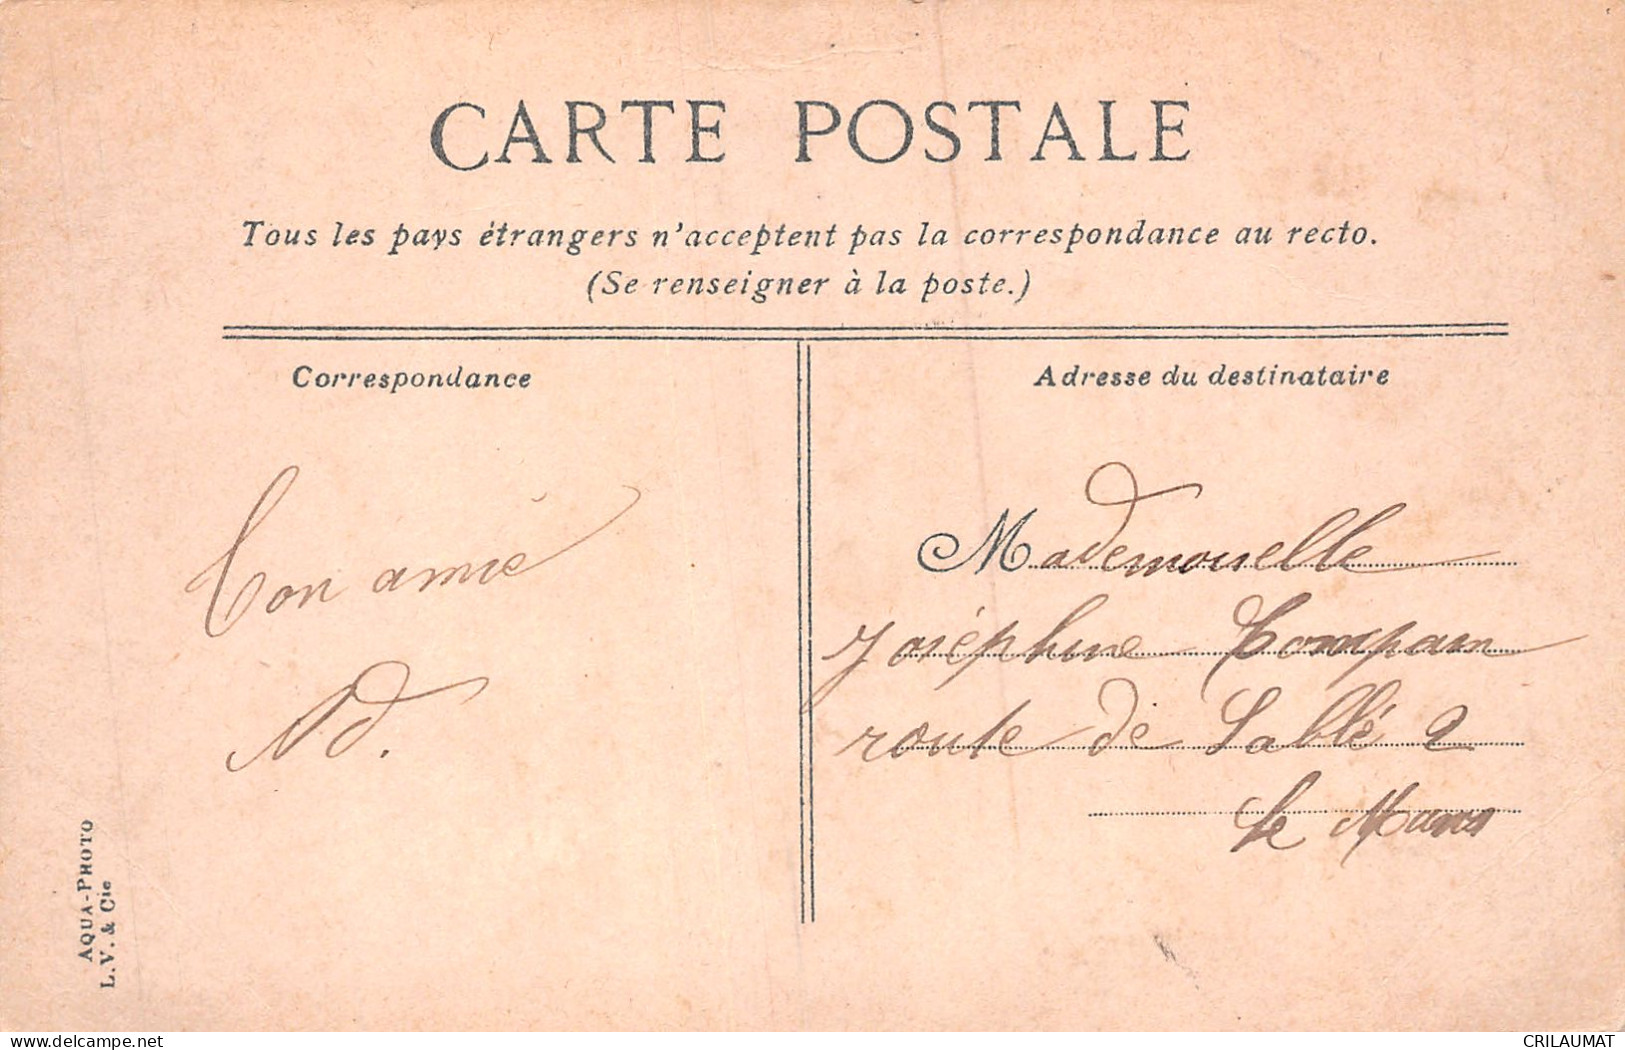 CARTE POSTALE
Tous les pays étrangers n'acceptent pas la correspondance au recto.
(Se renseigner à la poste.)
Correspondance
Adresse du destinataire
Ton amie
Ad.
Mademoiselle
Joséphine Compain
route de Sablé 2
Le Mans
AQUA-PHOTO
L.V. & Cie
delcampe.net
CRILAUMAT